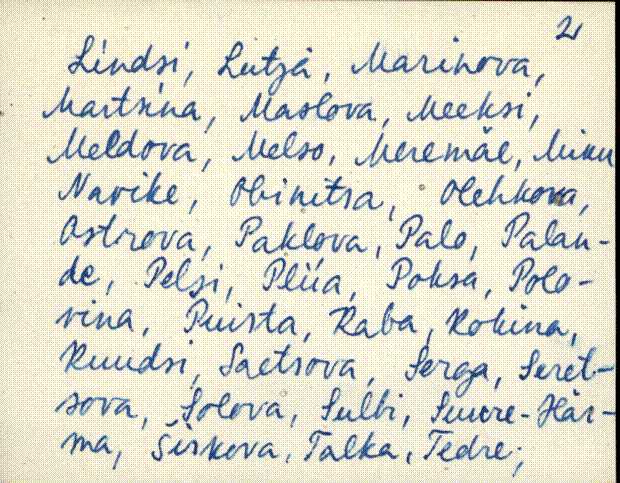 2
Lindsi, Lutja, Marinova,
Martsina, Maslova, Meeksi,
Meldova, Melso, Meremäe, Miku
Navike, Obinitsa, Olehkova,
Ostrova, Paklova, Palo, Palan-
de, Pelsi, Pliia, Poksa, Polo-
vina, Puista, Raba, Rokina,
Ruudsi, Saetsova, Serga, Seret-
sova, Solova, Sulbi, Suure-Här-
ma, Šiskova, Talka, Tedre,